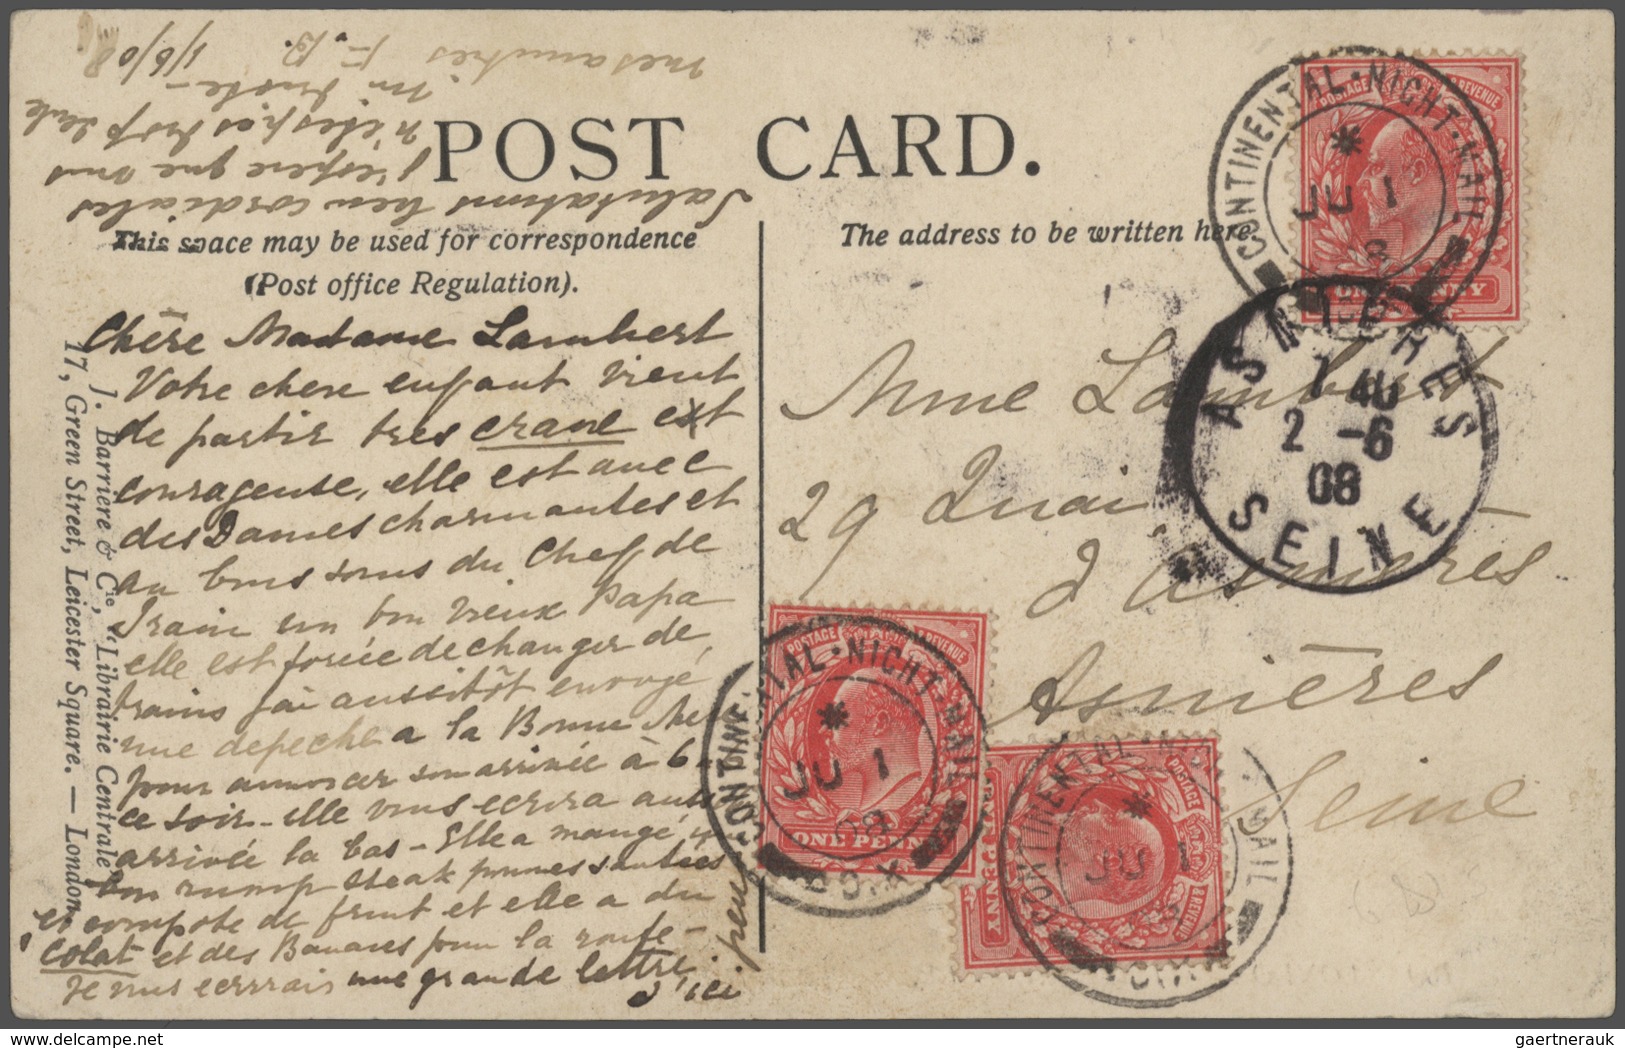 POST CARD.
This space may be used for correspondence
(Post office Regulation).
The address to be written here.
Chère Madame Lambert
Votre chere enfant vient
de partir tres crane et
courageuse, elle est avec
des Dames charmantes et
au bons soins du Chef de
Train un bon vieux Papa
elle est forcée de changer de
trains j'ai aussitôt envoyé
une depeche a la Bonne
pour annoncer son arrivée à 6
ce soir - elle vous ecrira
arrivée la bas - Elle a mangé
bon rump steak pommes sautées
et compote de fruit et elle a du
colat et des Bananes pour la route -
Je vous ecrirais une grande lettre
d'ici peu
Salutations bien cordiales
J'espère que vous
n'êtes pas trop seule
ni triste -
mes amitiés F. B.
1/6/08
J. Barrière & Cie, "Librairie Centrale"
17, Green Street, Leicester Square. — London.
Mme Lambert
29 Quai
d'Asnieres
Asnières
Seine
CONTINENTAL·NIGHT·MAIL
JU 1
08
ONE PENNY
POSTAGE & REVENUE
ASNIERES
7 40
2 -6
08
SEINE
CONTINENTAL·NIGHT·MAIL
JU 1
08
POSTAGE & REVENUE
ONE PENNY
CONTINENTAL·NIGHT·MAIL
JU 1
08
POSTAGE & REVENUE
ONE PENNY
gaertnerauk